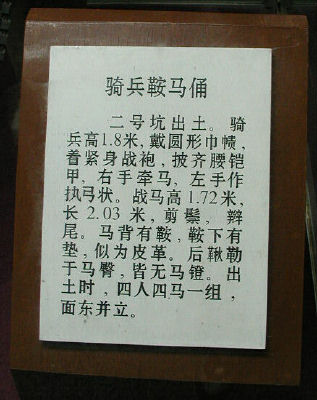 骑兵鞍马俑
二号坑出土。骑
兵高1.8米,戴圆形巾帻,
着紧身战袍,披齐腰铠
甲,右手牵马,左手作
执弓状。战马高1.72米,
长2.03米,剪鬃,辫
尾。马背有鞍,鞍下有
垫,似为皮革。后鞦勒
于马臀,皆无马镫。出
土时,四人四马一组,
面东并立。